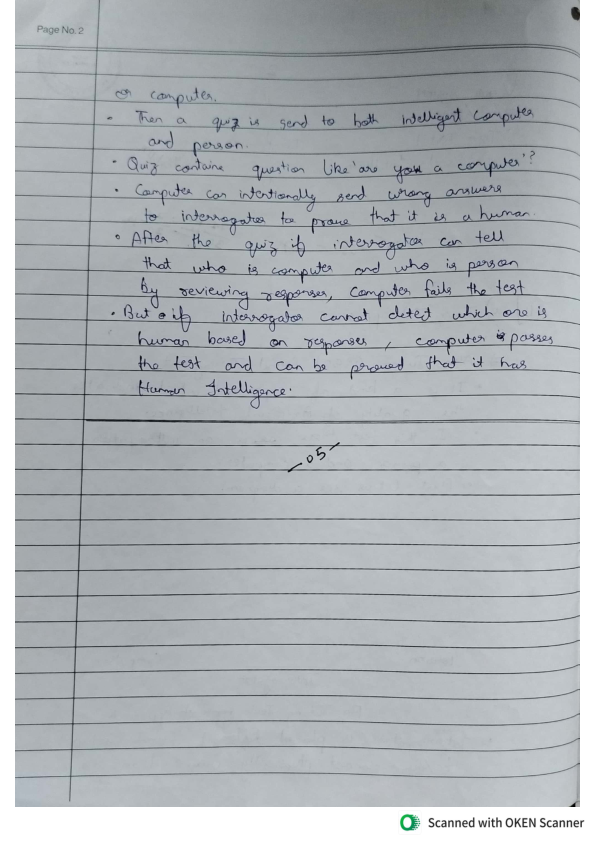 Page No. 2
or computer.
- Then a quiz is send to both intelligent computer
and person.
• Quiz containe question like 'are you a computer'?
• Computer can intentionally send wrong answers
to interrogator to prove that it is a human.
• After the quiz if interrogator can tell
that who is computer and who is person
by reviewing responses, Computer fails the test
• But if interrogator cannot detect which one is
human based on responses, computer passes
the test and can be proved that it has
Human Intelligence.
-05-
Scanned with OKEN Scanner